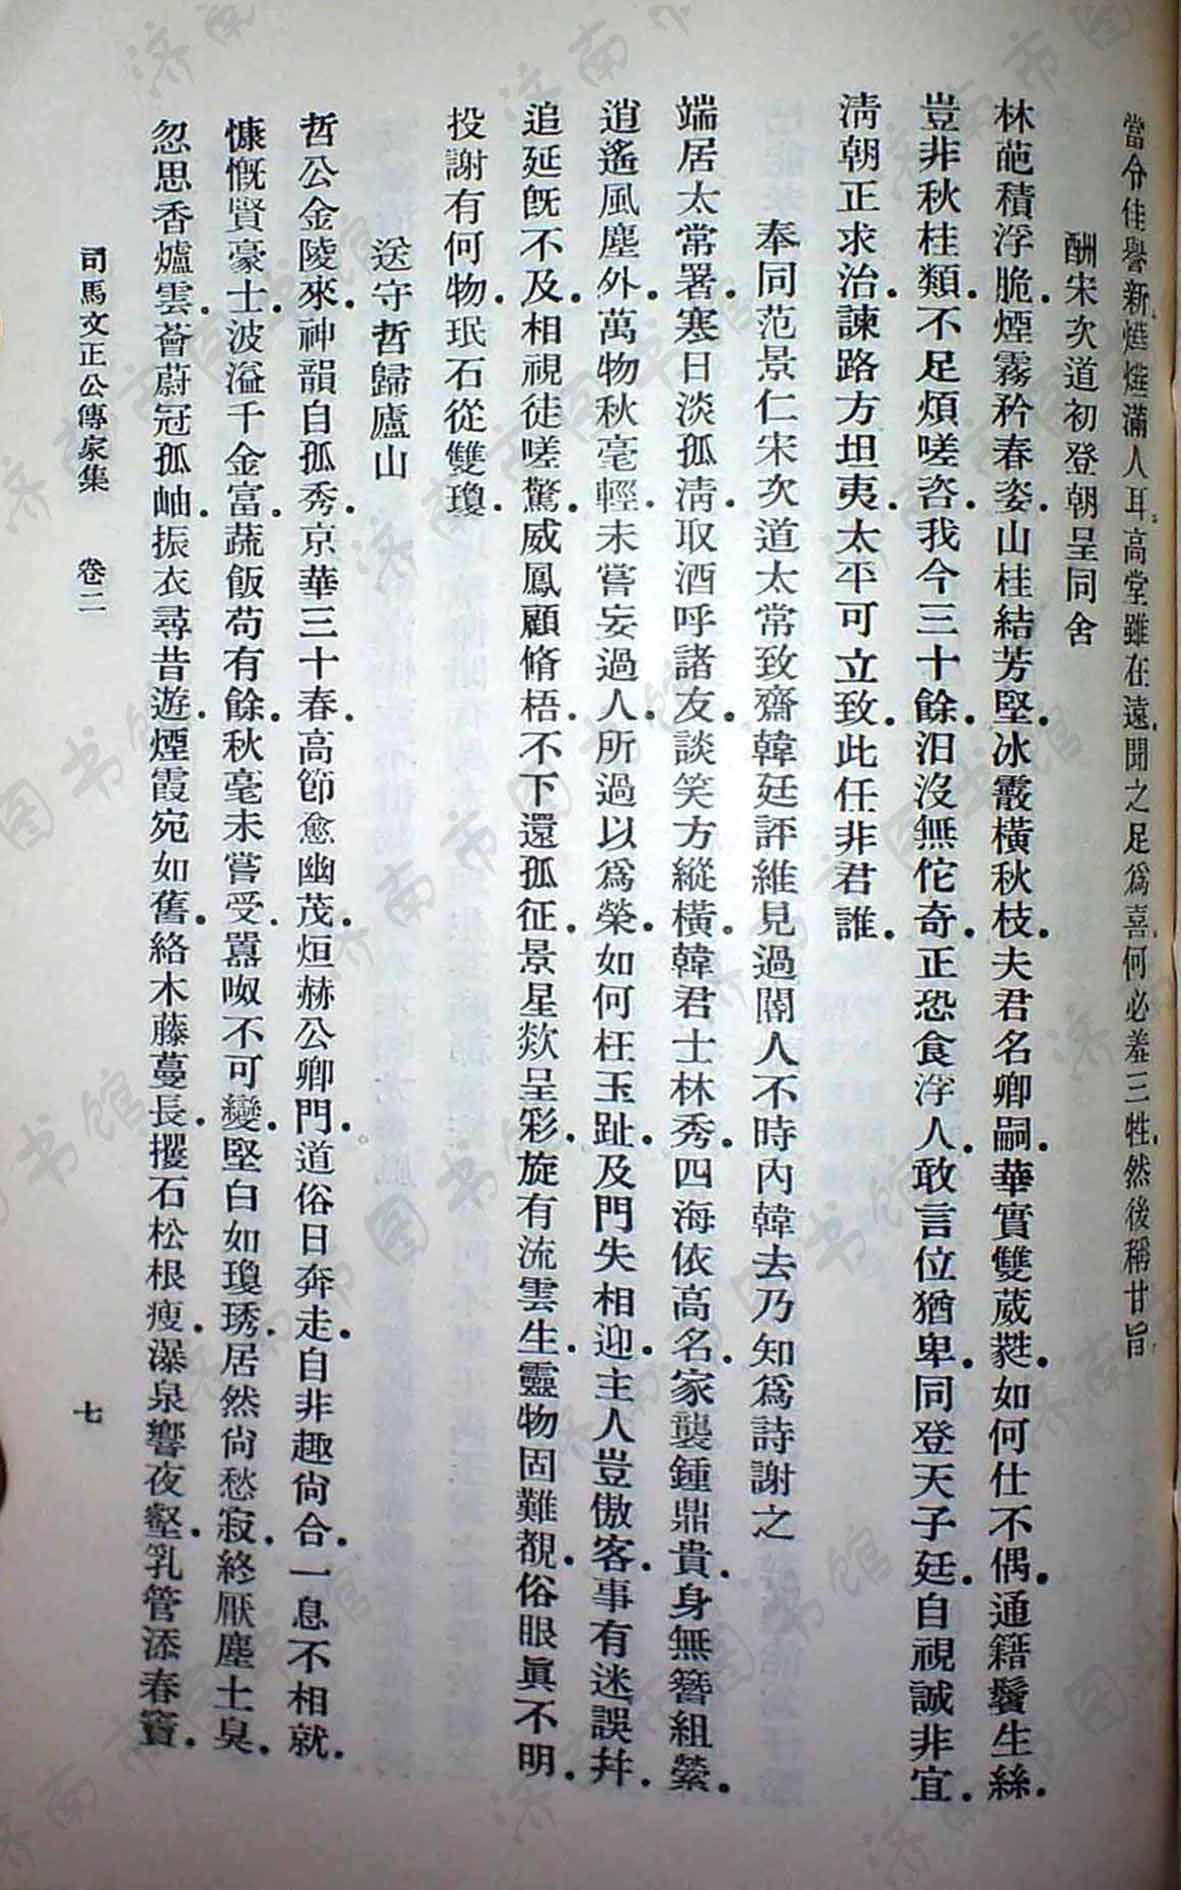 當分佳譽新燁燁滿人耳高堂雖在遠聞之足爲喜何必羞三牲然後稱甘旨
酬宋次道初登朝呈同舍
林葩積浮脆煙霧矜春姿山桂結芳堅冰霰橫秋枝夫君名卿嗣華實雙葳蕤如何仕不偶通籍鬢生絲
豈非秋桂類不足煩嗟咨我今三十餘汨沒無佗奇正恐食浮人敢言位猶卑同登天子廷自視誠非宜
清朝正求治諫路方坦夷太平可立致此任非君誰
奉同范景仁宋次道太常致齋韓廷評維見過閽人不時內韓去乃知爲詩謝之
端居太常署寒日淡孤淸取酒呼諸友談笑方縱橫韓君士林秀四海依高名家襲鍾鼎貴身無簪組縈
逍遙風塵外萬物秋毫輕未嘗妄過人所過以爲榮如何枉玉趾及門失相迎主人豈傲客事有迷誤幷
追延旣不及相視徒嗟驚威鳳顧脩梧不下還孤征景星欻呈彩旋有流雲生靈物固難覩俗眼眞不明
投謝有何物珉石從雙瓊
送守哲歸廬山
哲公金陵來神韻自孤秀京華三十春高節愈幽茂烜赫公卿門道俗日奔走自非趣尙合一息不相就
慷慨賢豪士波溢千金富蔬飯苟有餘秋毫未嘗受囂呶不可變堅白如瓊琇居然尙愁寂終厭塵土臭
忽思香爐雲薈蔚冠孤岫振衣尋昔遊煙霞宛如舊絡木藤蔓長攫石松根瘦瀑泉響夜壑乳管添春竇
司馬文正公傳家集 卷二 七
济南市图书馆